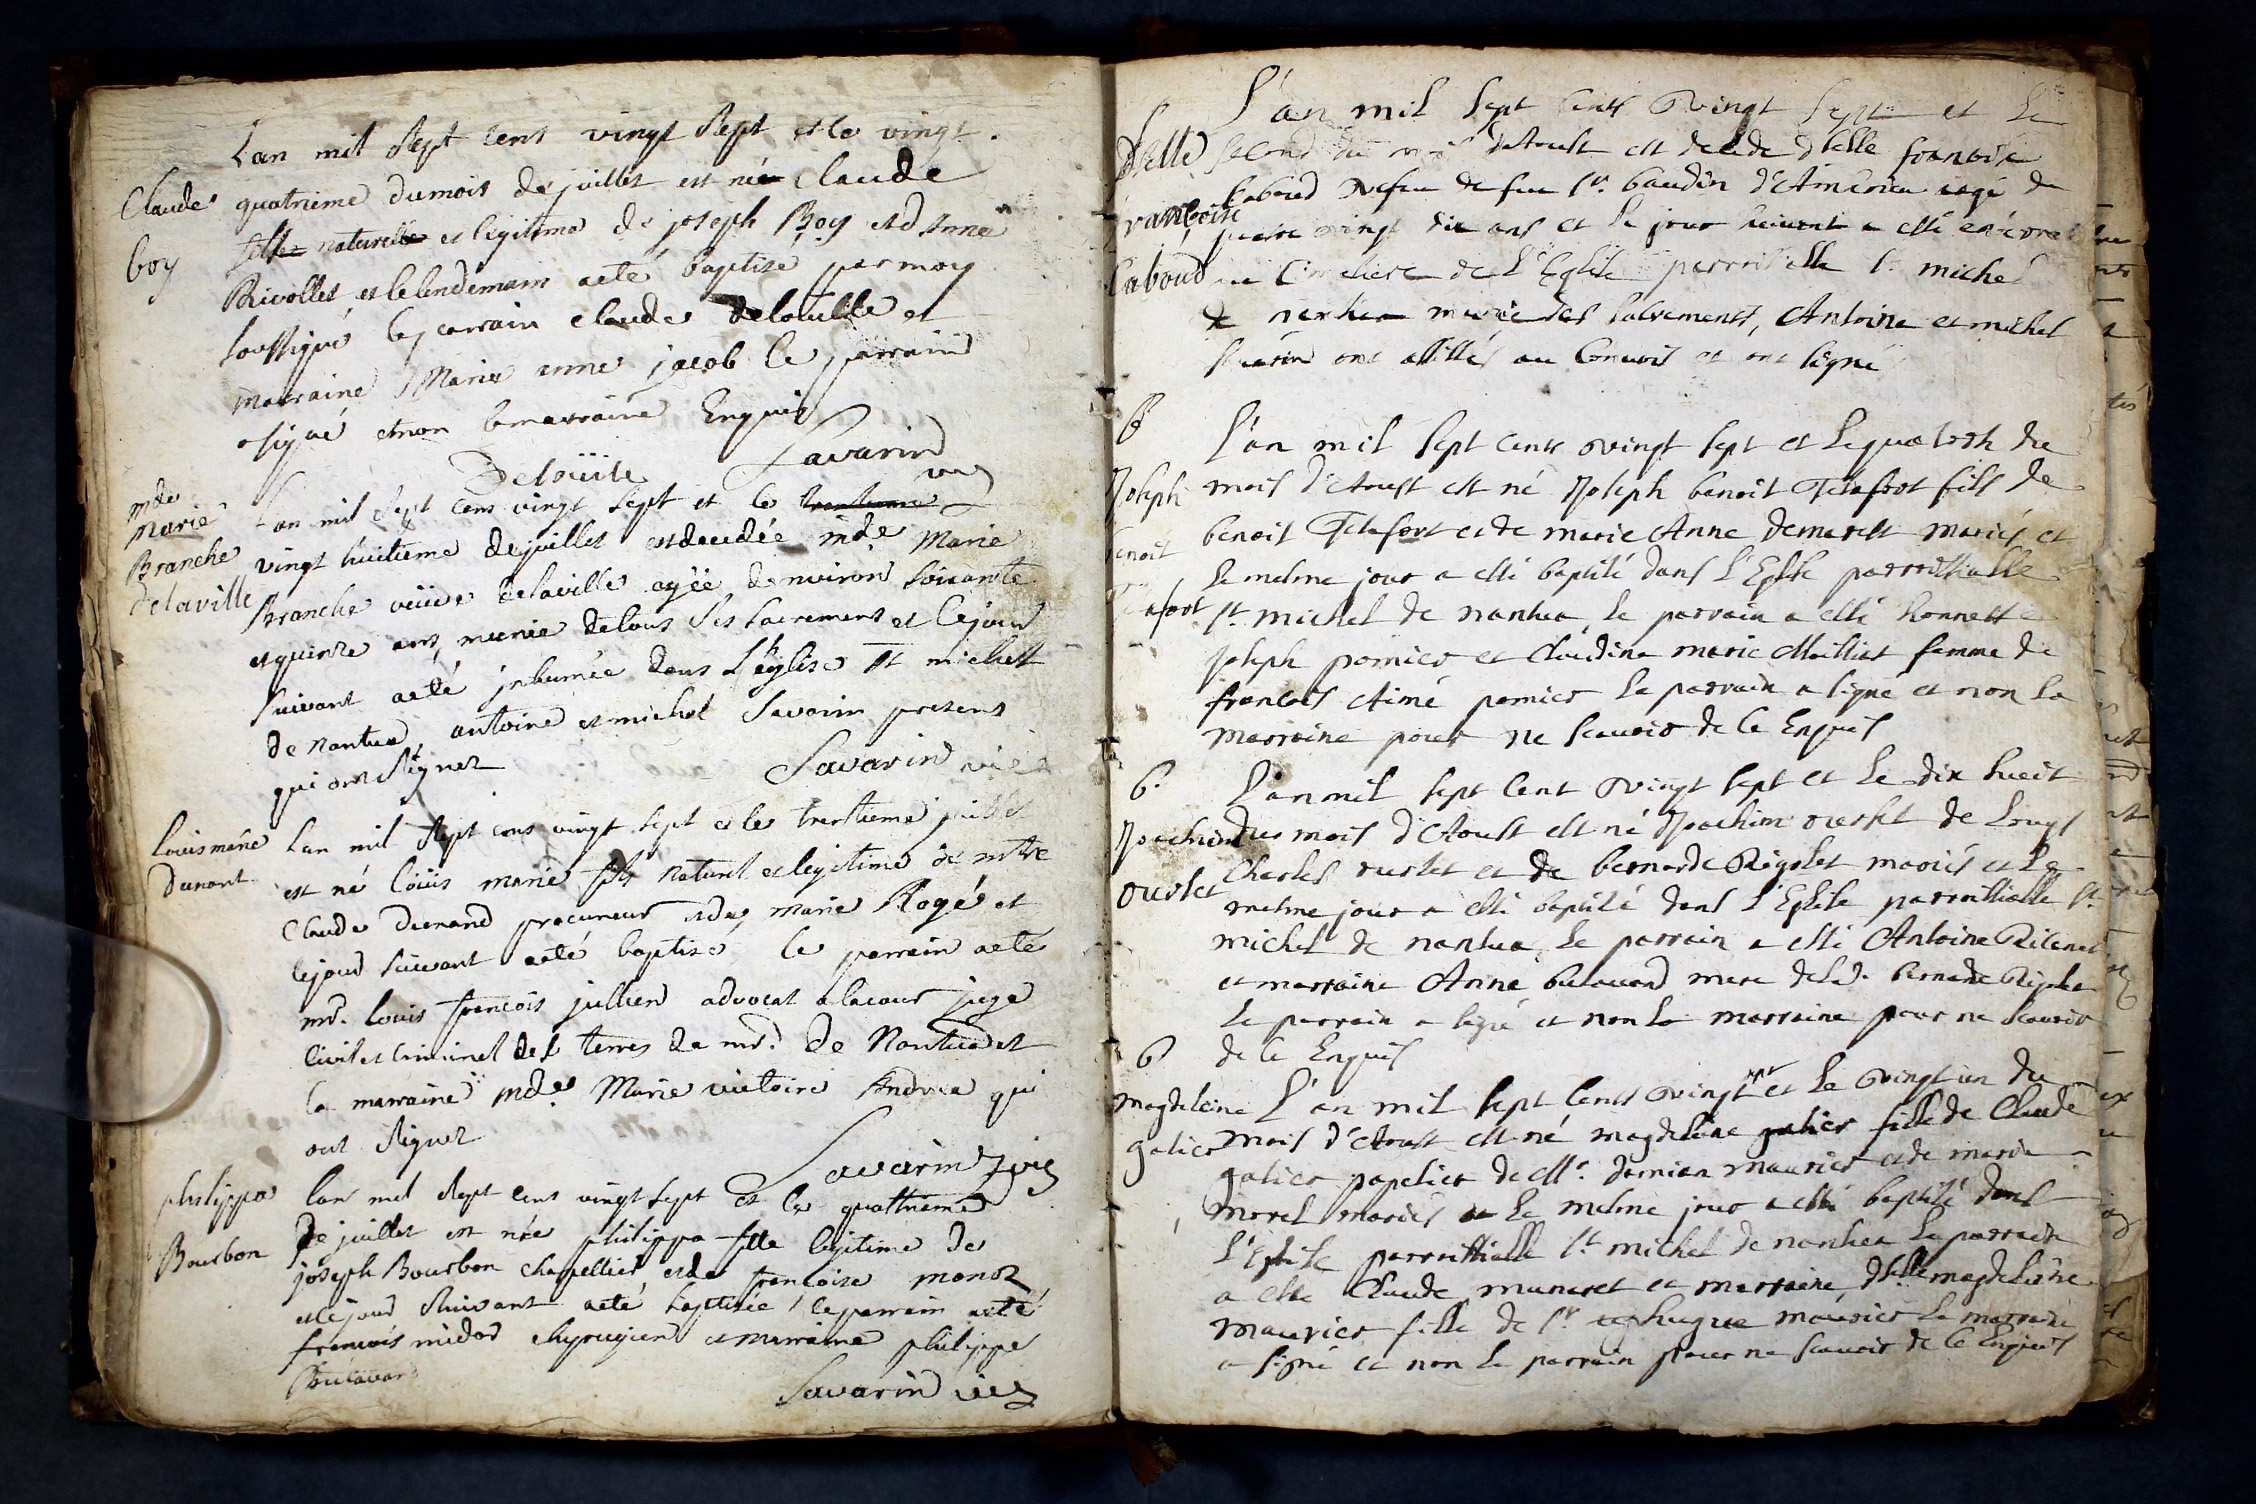 Lan mil sept cens vingt sept et le vingt
Claude quatrieme du mois de juillet est née Claude
boy fille naturelle et legitime de joseph Boy et d Anne
Brivollet et le lendemain a eté baptisé par moy
soussigné le parrain Claude delouille et
marraine Marie anne jacob le parrain
a signé et non la marraine Enquis
Deloüile Savarin vic
mde
Marie
Branche
delaville
Lan mil sept cens vingt sept et le trentieme
vingt huitieme de juillet est decedée mde Marie
Branche veüve delaville agée denviron soixante
et quinze ans, munie de tous ses sacremens et le jour
suivant a eté inhumée dans L'église st michel
de nantua, antoine et michel Savarin presens
qui ont signez
Savarin vic
Louis marie
dunant
Lan mil sept cens vingt sept et le trentieme juillet
est né loüis marie fils naturel et legitime de mtre
Claude dunand procureur et de marie Rogé et
le jour suivant a eté baptisé le parrain a eté
mr. Louis françois jullien advocat a la cour juge
Civil et criminel des terres de mr. de Nantua et
la marraine mde Marie victoire Andrea qui
ont signez
Savarin vic
philippa
Bourbon
Lan mil sept cens vingt sept et le quattrieme
de juillet est née philippa fille legitime de
joseph Bourbon chapellier et de françoise monoz
et le jour suivant a eté baptisée, le parrain a eté
françois midor chyrugien et marraine philippe
Butavand
Savarin vic
L'an mil sept cents vingt sept et le
Dlle
françoise
Caboud
second du mois d'Aoust est decede dlle françoise
Caboud vefve de feu sr. baudin d'Amérieu agé de
quatre vingt dix ans et le jour suivant a esté enterré
au Cimetiere de L'Eglise parroissialle st michel
de nantua munie des sacrements, Antoine et michel
Savarin ont assistés au Convois et ont signé
B
Joseph
benoit
Tetafort
L'an mil sept cents vingt sept et le quatorze du
mois d'Aoust est né Joseph benoit Tetafort fils de
benoit Tetafort et de marie Anne demarest mariés et
le mesme jour a esté baptisé dans L'Eglise parroissialle
st. michel de nantua, le parrain a esté honneste
joseph pomier et Claudine marie Maillat femme de
françois Aimé pomier le parrain a signé et non la
marraine pour ne scavoir de ce Enquis
B.
Joachim
ourlet
L'an mil sept cent vingt sept et le dix huit
du mois d'Aoust est né Joachim ourlet de Louys
Charles ourlet et de bernarde Rigolet mariés et le
mesme jour a esté baptisé dans L'Eglise parroissialle st.
michel de nantua, le parrain a esté Antoine
et marraine Anne butavand mere de lad. bernarde
le parrain a signé et non la marraine pour ne scavoir
de ce Enquis
B
magdelaine
galier
L'an mil sept cents vingt et le vingt un du
mois d'Aoust est né magdelaine galier fille de Claude
galier papetier de Mr. damian maurier et de marie
morel mariés et le mesme jour a esté baptisé dans
L'Eglise parroissialle st michel de nantua le parrain
a esté Claude muneret et marraine, dlle magdelaine
maurier fille de sr hugue maurier la marraine
a signé et non le parrain pour ne scavoir de ce Enquis